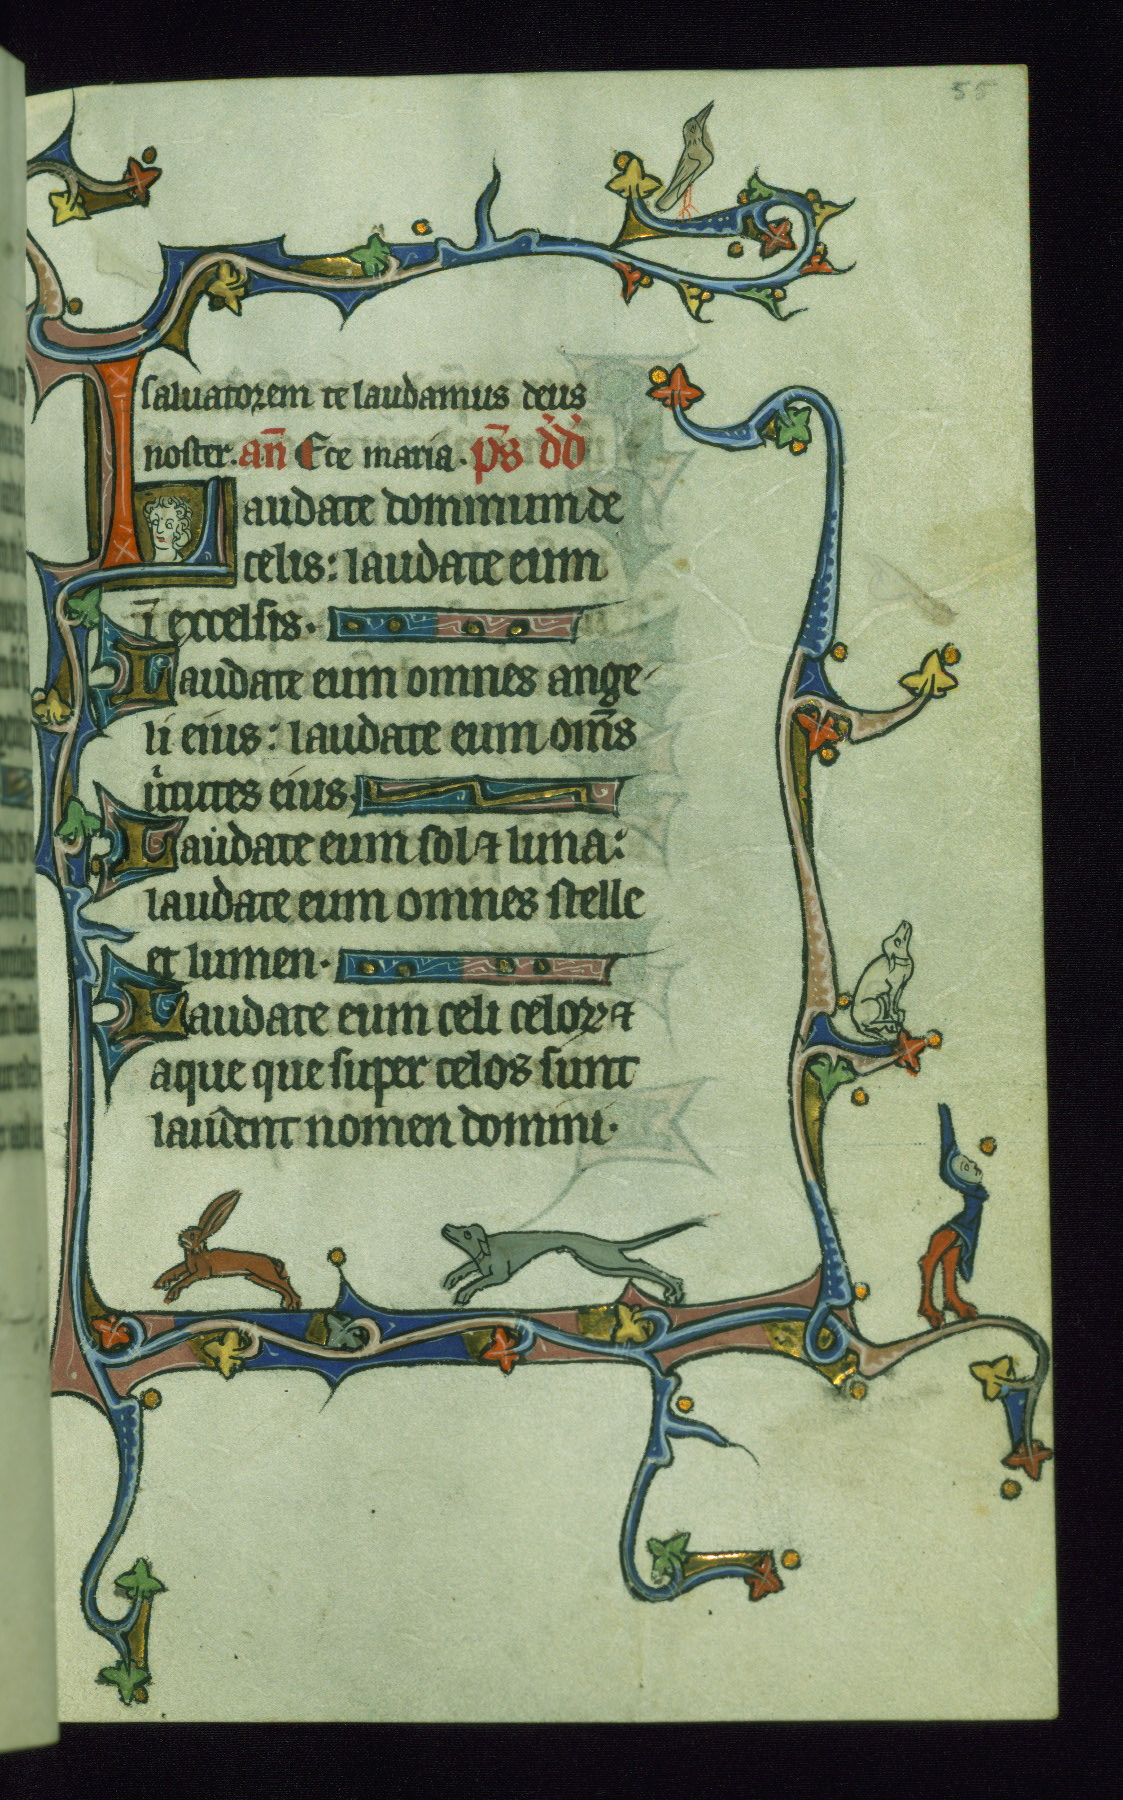 55
saluatorem te laudamus deus
noster. an̄ Ecce maria. p̄s dd̄
Laudate dominum de
celis: laudate eum
ī excelsis.
Laudate eum omnes ange
li eius: laudate eum om̄s
uͥtutes eius.
Laudate eum sol ⁊ luna:
laudate eum omnes stelle
et lumen.
Laudate eum celi celoꝝ ⁊
aque que super celos sunt
laudent nomen domini.